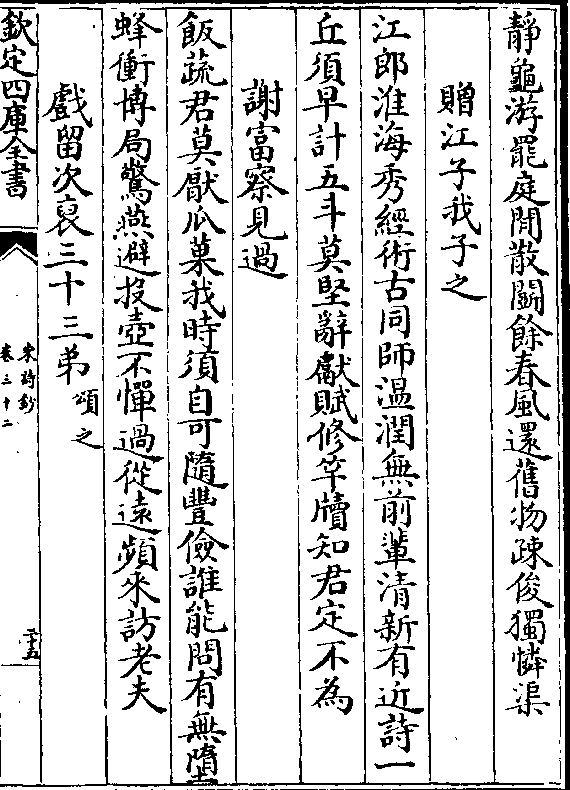 靜龜游罷庭閒散闘餘春風還舊物疎俊獨憐渠
贈江子我子之
江郎淮海秀經術古同師温潤無前輩清新有近詩一
丘須早計五斗莫堅辭獻賦修竿牘知君定不為
謝富察見過
飯蔬君莫厭瓜菓我時須自可隨豐儉誰能問有無墮
蜂衝博局驚燕避投壺不憚過從遠頻來訪老夫
戲留次裒三十三弟頌之
欽定四庫全書
宋詩鈔
卷三十二
二十五